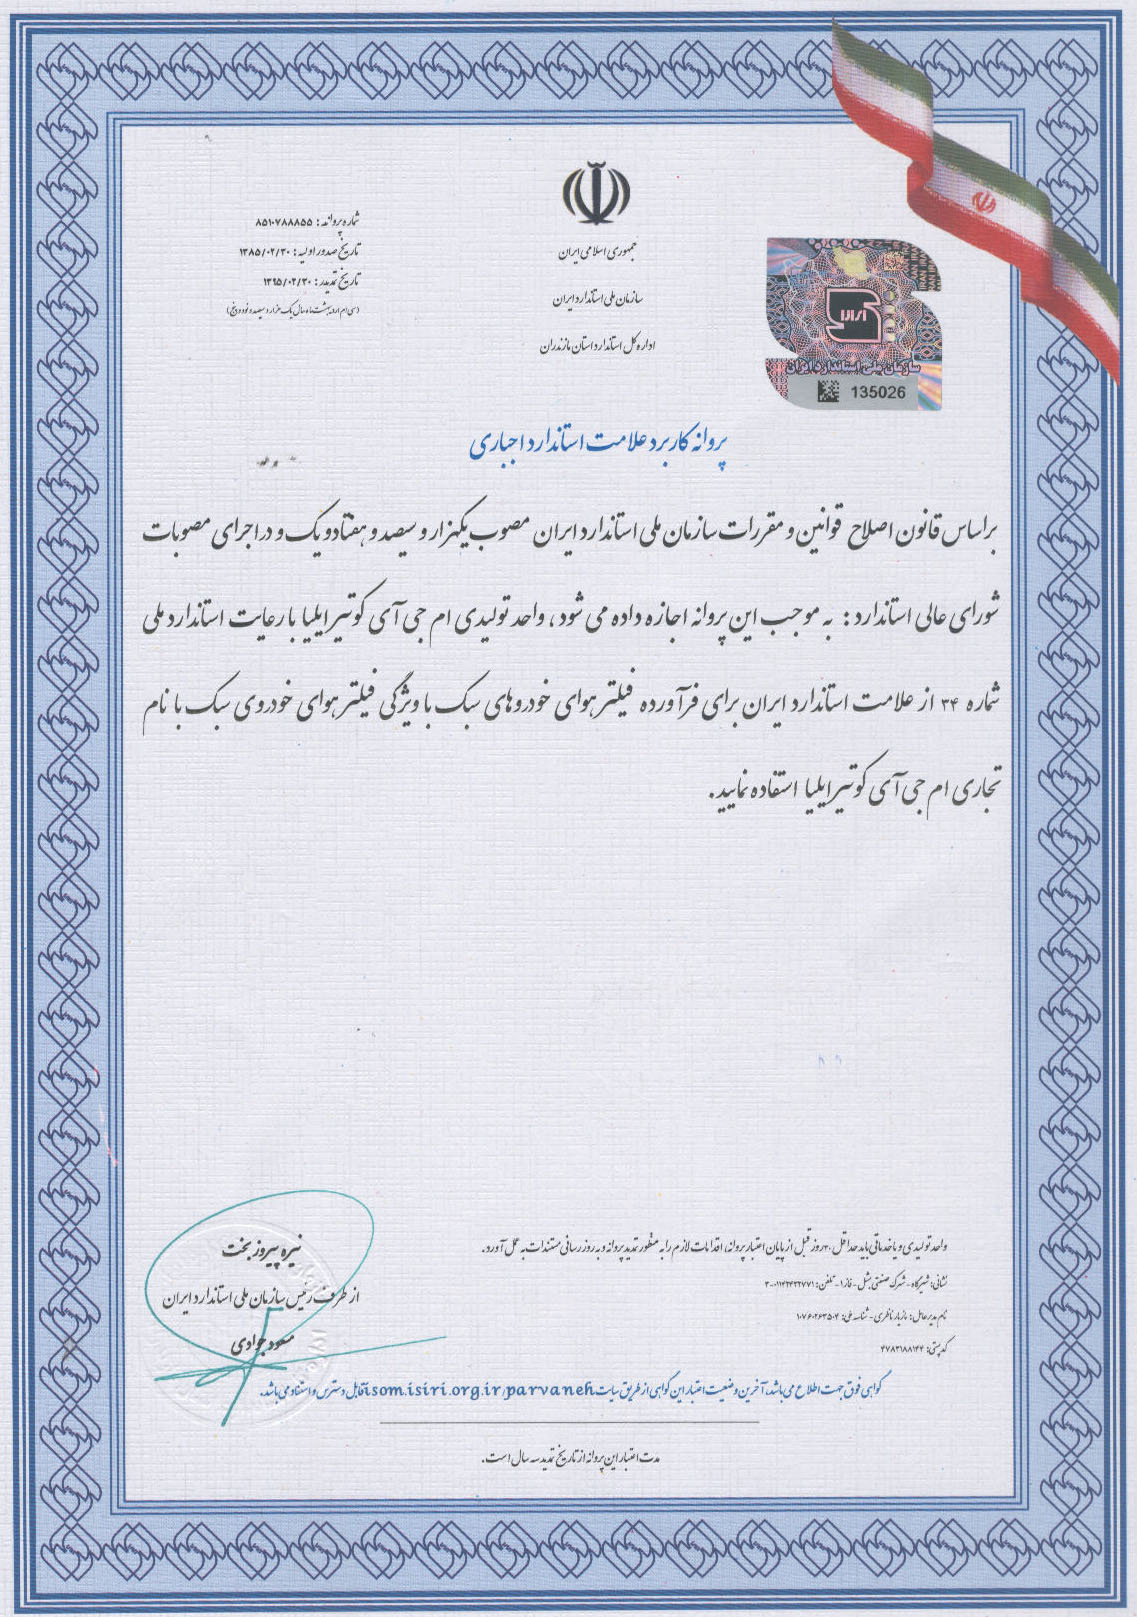 جمهوری اسلامی ایران
سازمان ملی استاندارد ایران
اداره کل استاندارد استان مازندران
شماره پروانه: ۸۵۱۰۷۸۸۸۵۵
تاریخ صدور اولیه: ۱۳۸۵/۰۲/۳۰
تاریخ تمدید: ۱۳۹۵/۰۲/۳۰
(سی ام اردیبهشت ماه سال یک هزار و سیصد و نود و پنج)
سازمان ملی استاندارد ایران
135026
پروانه کاربرد علامت استاندارد اجباری
براساس قانون اصلاح قوانین و مقررات سازمان ملی استاندارد ایران مصوب یکهزار و سیصد و هفتاد و یک و در اجرای مصوبات
شورای عالی استاندارد: به موجب این پروانه اجازه داده می شود، واحد تولیدی ام جی آی کوتیر ایلیا با رعایت استاندارد ملی
شماره ۳۴ از علامت استاندارد ایران برای فرآورده فیلتر هوای خودروهای سبک با ویژگی فیلتر هوای خودروی سبک با نام
تجاری ام جی آی کوتیر ایلیا استفاده نمایید.
نیره پیروز بخت
از طرف رئیس سازمان ملی استاندارد ایران
مسعود جوادی
واحد تولیدی و یا خدماتی باید حداقل ۳۰ روز قبل از پایان اعتبار پروانه، اقدامات لازم را به منظور تمدید پروانه و به روز رسانی مستندات به عمل آورد.
نشانی: شیرگاه - شهرک صنعتی بشل - فاز ۱ - تلفن:
نام مدیرعامل: مازیار ناظری - شناسه ملی:
کدپستی: ۴۷۸۳۱۸۸۱۴۴
گواهی فوق جهت اطلاع می باشد، آخرین وضعیت اعتبار این گواهی از طریق سایت isom.isiri.org.ir/parvaneh قابل دسترس و استفاده می باشد.
مدت اعتبار این پروانه از تاریخ تمدید سه سال است.